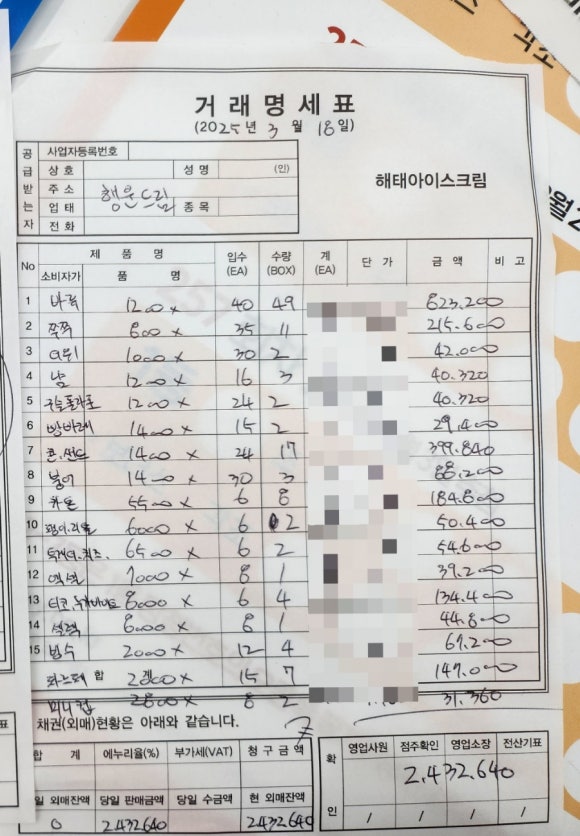 거래명세표
(2025년 3월 18일)
공급받는자
사업자등록번호
상호 성명 (인)
주소 행운드림
업태 종목
전화
해태아이스크림
No 제품명 입수(EA) 수량(BOX) 계(EA) 단가 금액 비고
소비자가 품명
1 1200 x 40 49 823.200
2 쭉쭉 800 x 35 11 215.600
3 1000 x 30 2 42.000
4 1200 x 16 3 40.320
5 구슬폴라포 1200 x 24 2 40.320
6 빵빠레 1400 x 15 2 29.400
7 콘.샌드 1400 x 24 17 399.840
8 붕어 1400 x 30 3 88.200
9 5500 x 6 8 184.800
10 6000 x 6 2 50.400
11 6500 x 6 2 54.600
12 7000 x 8 1 39.200
13 8000 x 6 4 134.400
14 8000 x 8 1 44.800
15 빙수 2000 x 12 4 67.200
합 x 15 7 147.000
미니컵 2800 x 8 2 31.360
채권(외매)현황은 아래와 같습니다.
합계 에누리율(%) 부가세(VAT) 청구금액
일 외매잔액 당일 판매금액 당일 수금액 현 외매잔액
0 2432640 2432640
확인 영업사원 점주확인 영업소장 전산기표
2.432.640
/ / / /